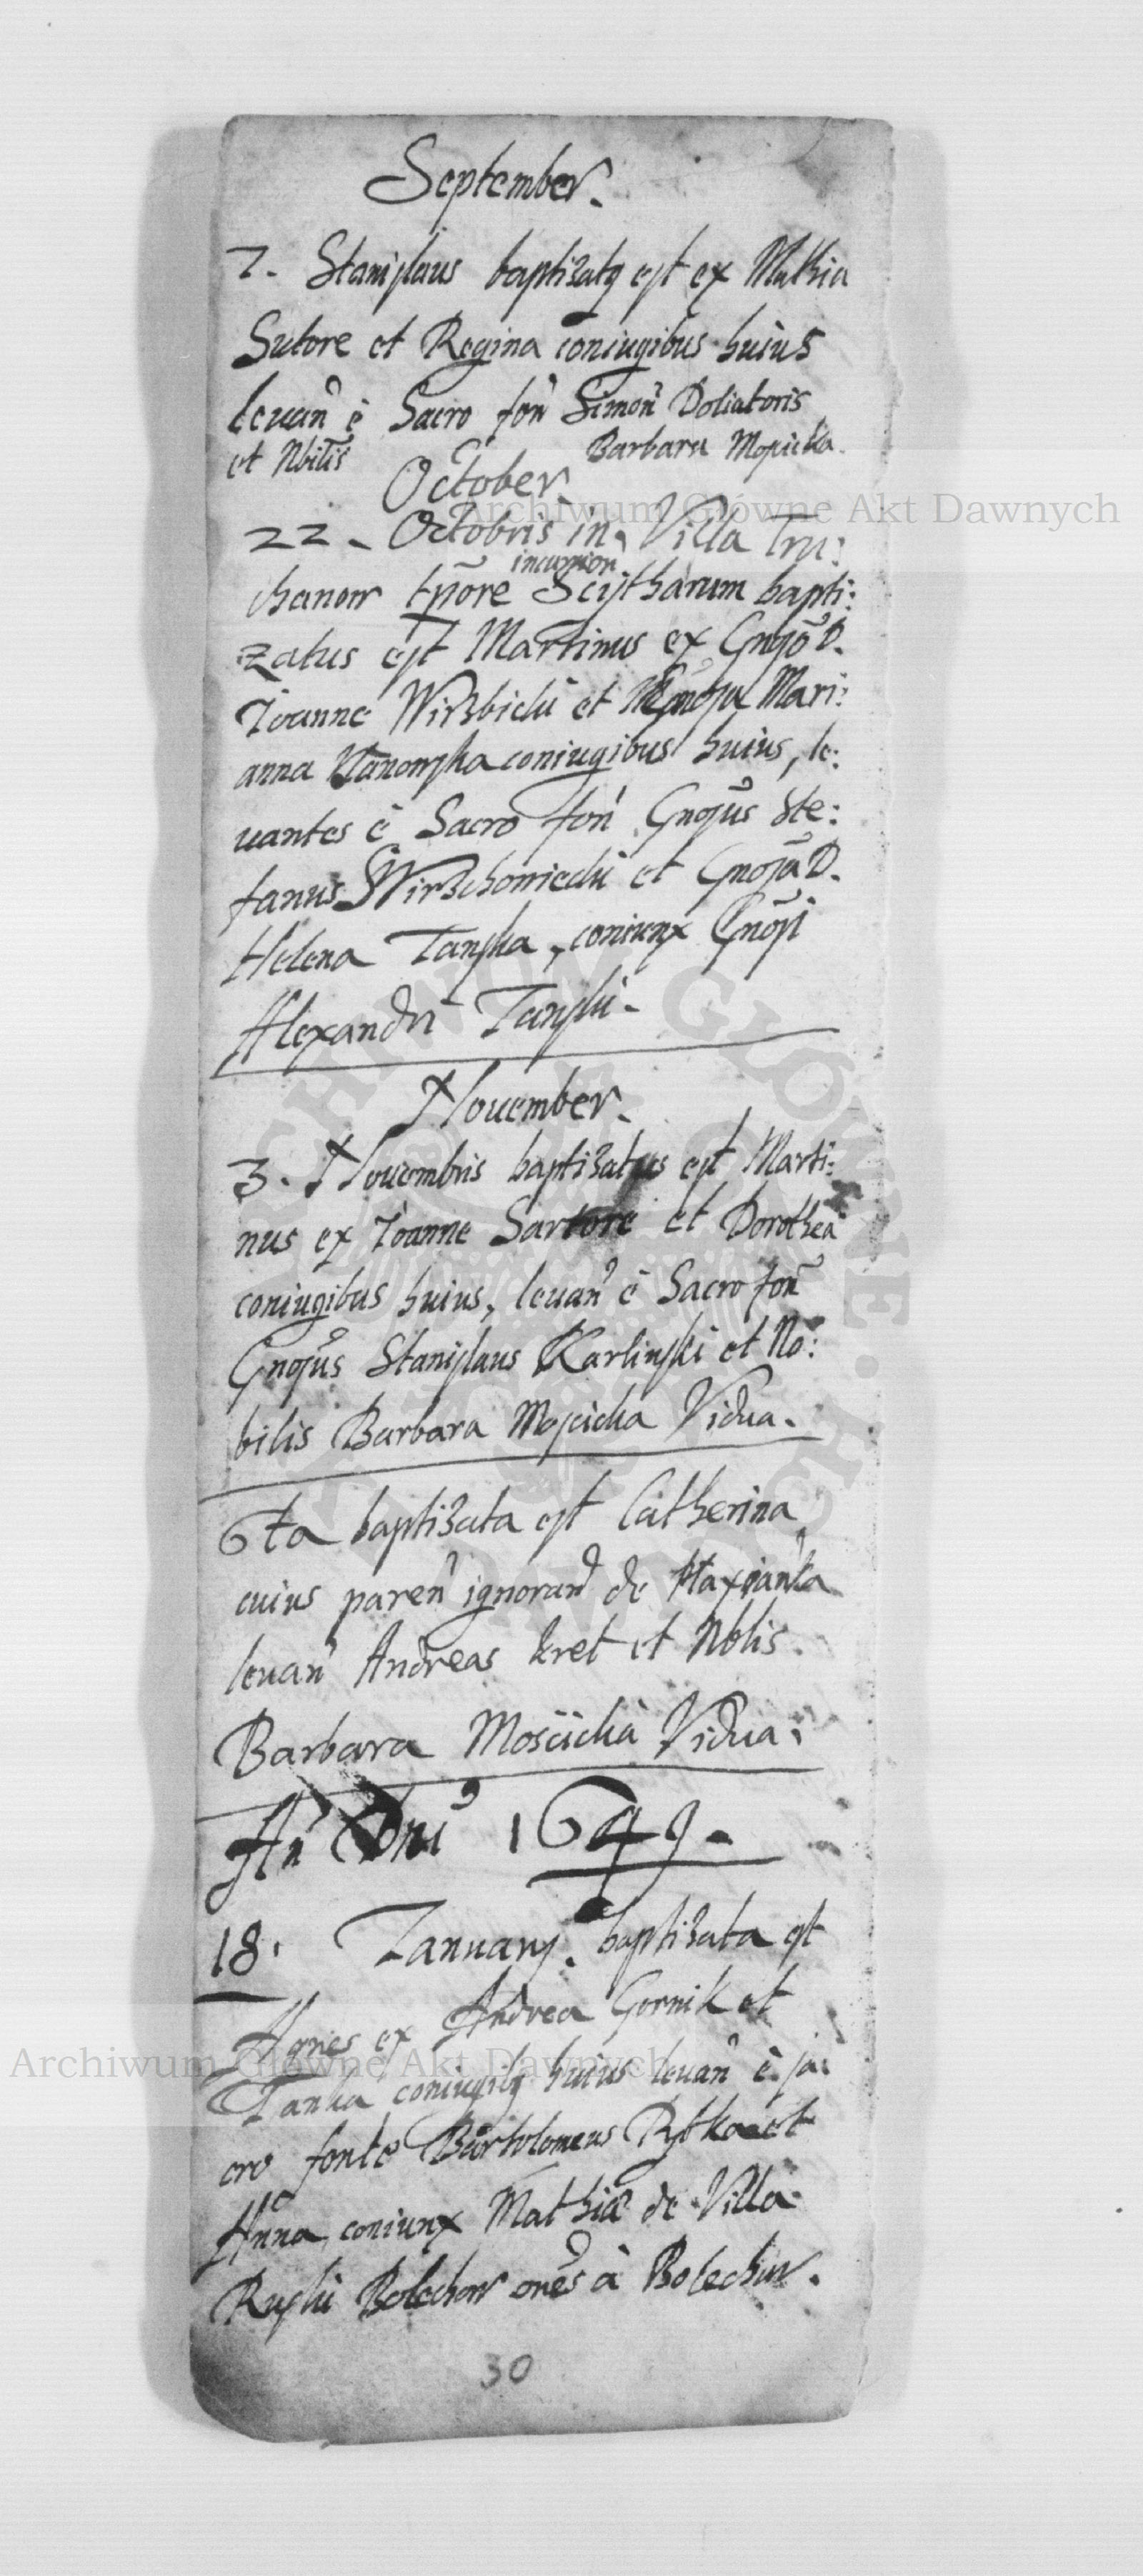 September.
7. Stanislaus baptizatq est ex Mathia
Sutore et Regina coniugibus huius
levan̄ è Sacro fon̄ Simon̄ Doliatoris
et Nbilis Barbara Moscicka.
October
22. Octobris in Villa Tru:
chanow tpōre incursion Scijtharum bapti:
zatus est Martinus ex Gnoso D.
Joanne Wirzbicki et Gnosa Mari:
anna coniugibus huius, le:
vantes è Sacro fon̄ Gnosus Ste:
fanus Wirzchowiecki et Gnosa D.
Helena Tanska, coniunx Gnosi
Alexandri Tanski.
November.
3. Novembris baptizatus est Marti:
nus ex Joanne Sartore et Dorothea
coniugibus huius, levan̄ è Sacro fon̄
Gnosus Stanislaus Karlinski et No:
bilis Barbara Moscicka Vidua.
6ta baptizata est Catherina
cuius paren̄ ignoran̄ de
levan̄ Andreas kret et Nblis
Barbara Moscicka Vidua.
An̄ Dni 1649.
18. Januarij. baptizata est
Agnes ex Andrea Gornik et
Tanka coniugibq huius levan̄ è sa:
cro fonte Bartolomeus Rytka et
Anna coniunx Mathiæ de Villa
Ruski Bolechow onēs à Bolechow.
30
Archiwum Główne Akt Dawnych
Archiwum Główne Akt Dawnych
ARCHIWUM GŁÓWNE AKT DAWNYCH